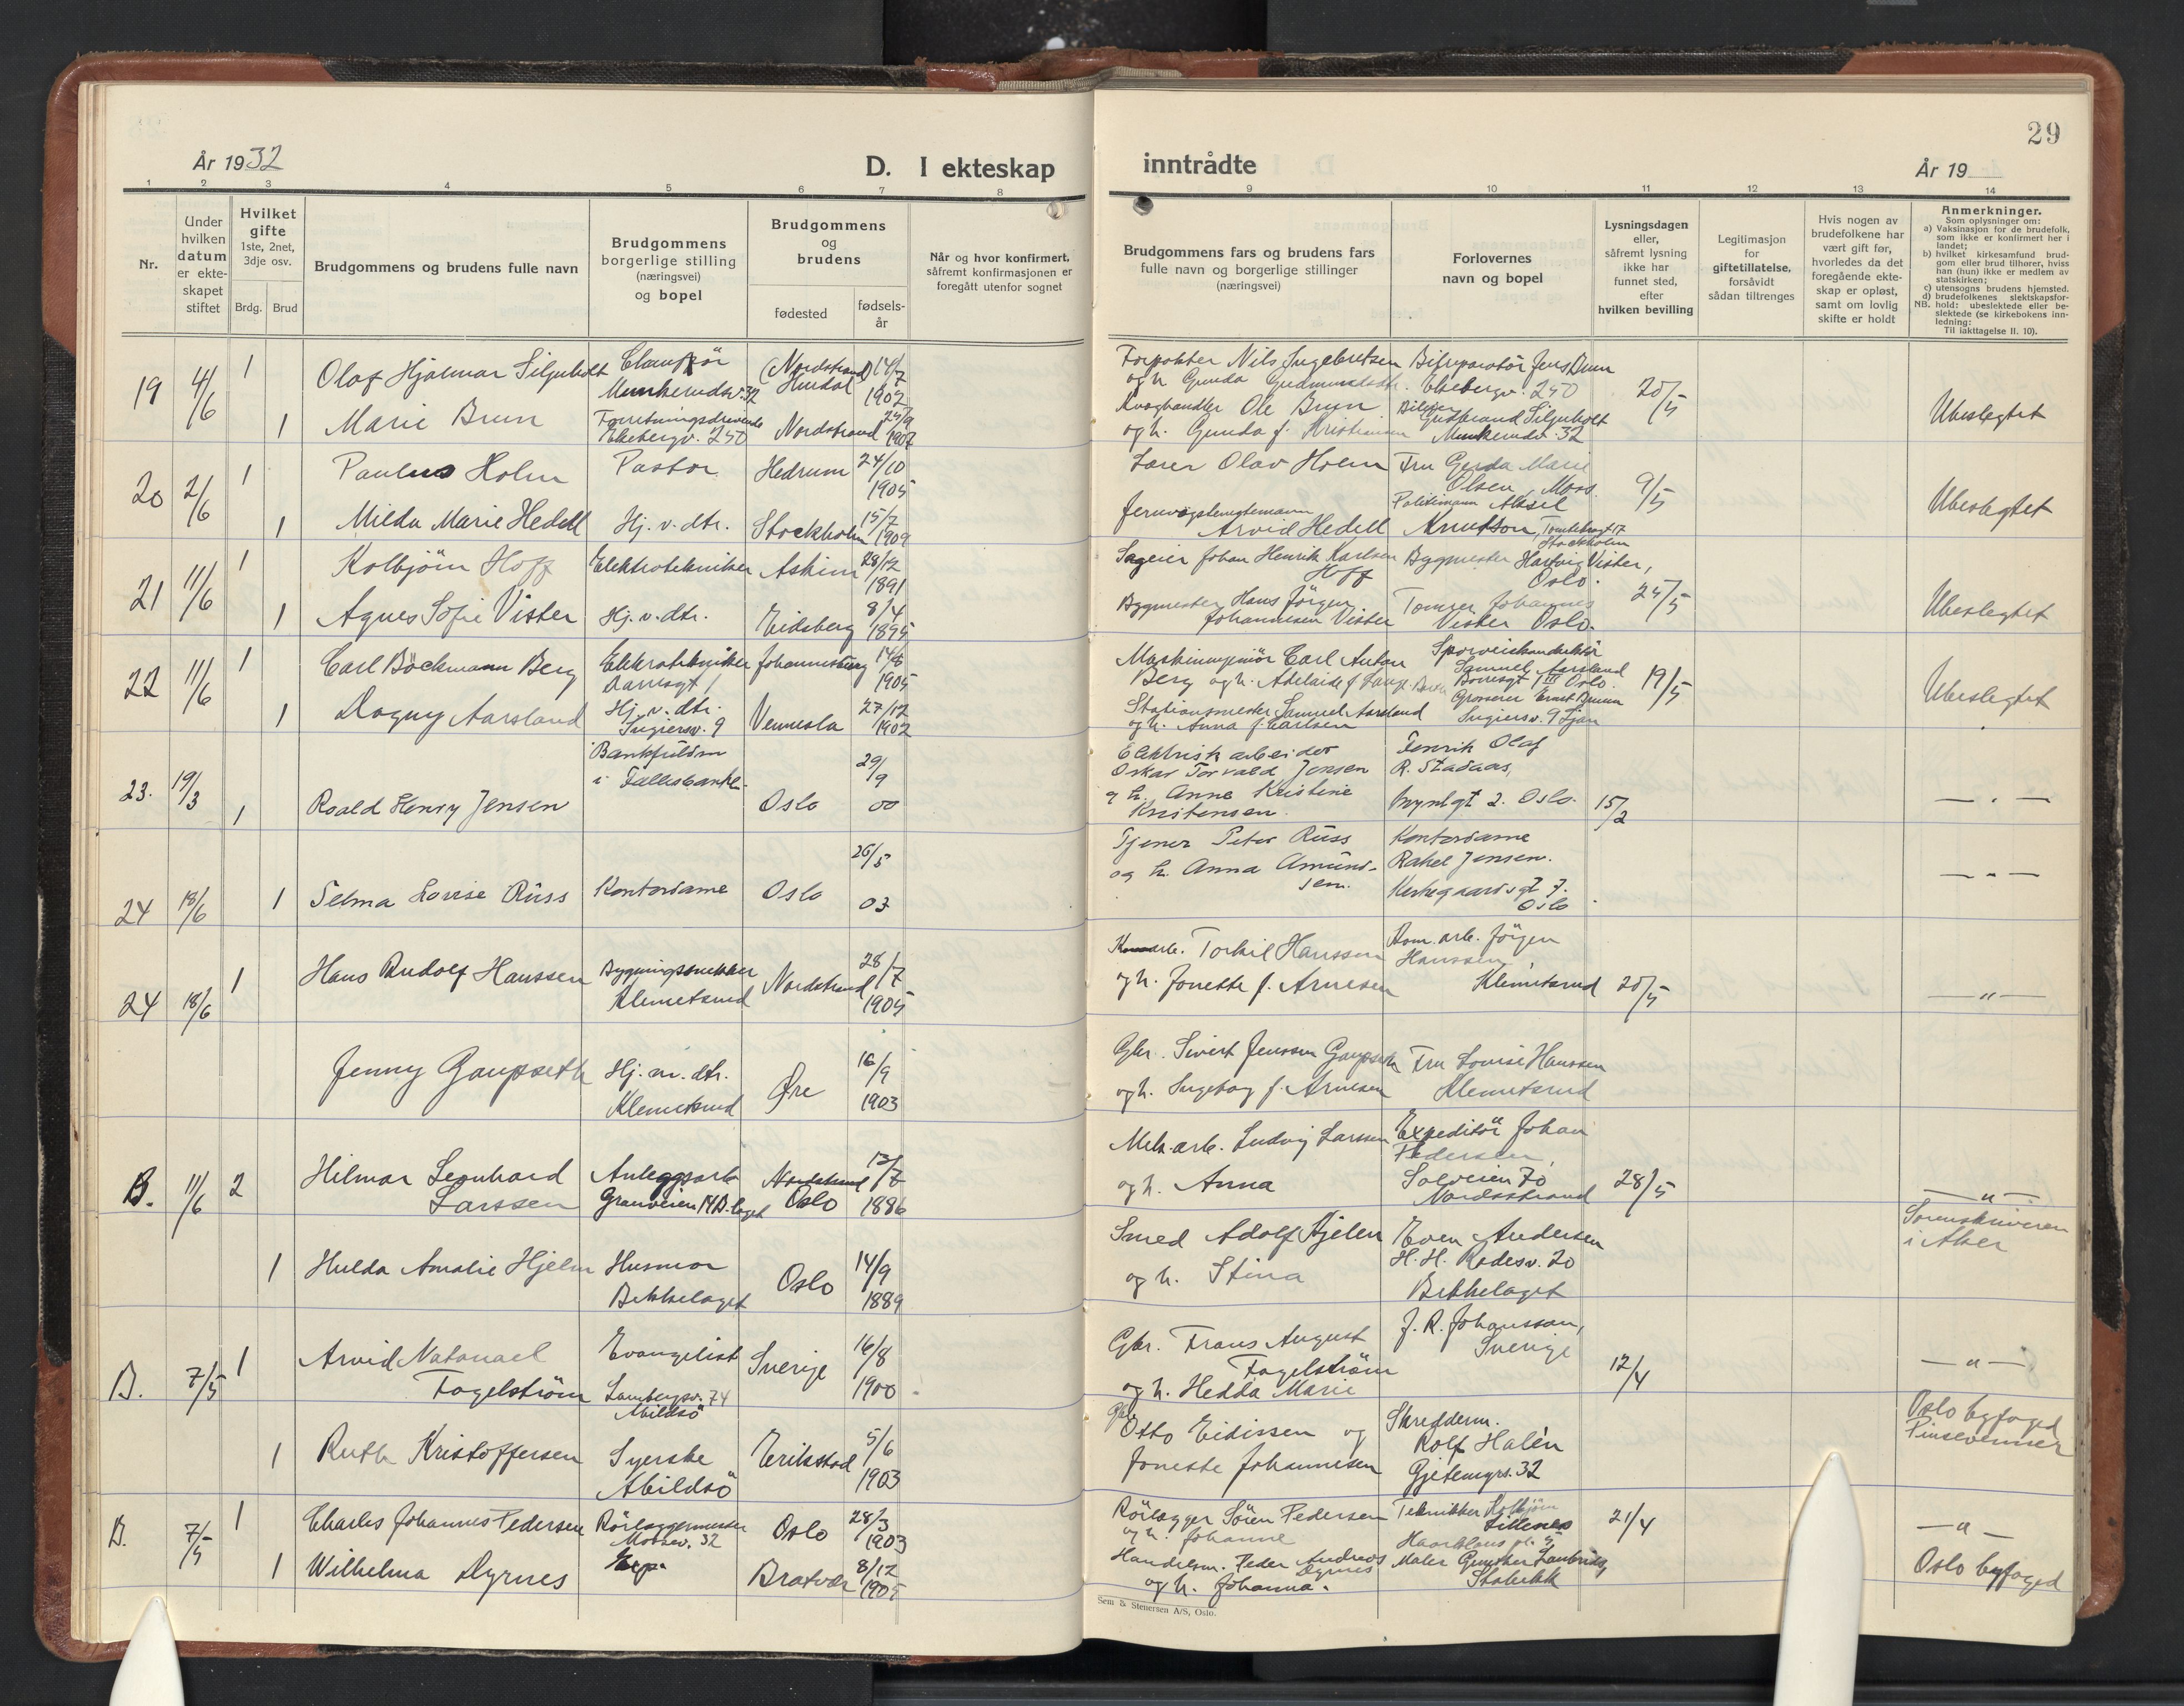 29
År 1932
D. I ekteskap
inntrådte
År 19
1 2 3 4 5 6 7 8
9 10 11 12 13 14
Nr.
Under hvilken datum er ekteskapet stiftet
Hvilket gifte 1ste, 2net, 3dje osv.
Brdg. Brud
Brudgommens og brudens fulle navn
Brudgommens borgerlige stilling (næringsvei) og bopel
Brudgommens og brudens
fødested
fødselsår
Når og hvor konfirmert, såfremt konfirmasjonen er foregått utenfor sognet
Brudgommens fars og brudens fars fulle navn og borgerlige stillinger (næringsvei)
Forlovernes navn og bopel
Lysningsdagen eller, såfremt lysning ikke har funnet sted, efter hvilken bevilling
Legitimasjon for giftetillatelse, forsåvidt sådan tiltrenges
Hvis nogen av brudefolkene har vært gift før, hvorledes da det foregående ekteskap er opløst, samt om lovlig skifte er holdt
Anmerkninger.
Som oplysninger om:
a) Vaksinasjon for de brudefolk, som ikke er konfirmert her i landet;
b) hvilket kirkesamfund brudgom eller brud tilhører, hviss han (hun) ikke er medlem av statskirken;
c) utensogns brudens hjemsted.
d) brudefolkenes slektskapsforhold: ubeslektede eller beslektede (se kirkebokens innledning:
NB.
Til iakttagelse II. 10).
19 4/6 1 Olaf Hjalmar Siljuholt
Munkerudv. 32 (Nordstrand) Hurdal 14/7 1902
Nils Ingebretsen
og h. Gunda
Ekebergv. 250
20/5 Ubeslegtet
1 Marie Brun Forretningsdrivende
Ekebergv. 250 Nordstrand 1902
Ole Brun
og h. Gunda f. Kristiansen
Gudbrand Siljuholt
Munkerudv. 32
20 2/6 1 Paulus Holm Pastor Hedrum 24/10 1905
Lærer Olav Holm Fru Gerda Marie
Olsen, Moss. 9/5 Ubeslegtet
1 Milda Marie Hedell Hj. v. dtr. Stockholm 15/7 1909
Arvid Hedell Politimann Aksel
Knutson,
Stockholm
21 11/6 1 Kolbjörn Hoff Elektrotekniker Askim 28/12 1891
Sageier Johan Henrik Karlsen
Hoff
Bygmester Hartvig Vister,
Oslo. 24/5 Ubeslegtet
1 Agnes Sofie Vister Hj. v. dtr. Eidsberg 8/4 1895
Bygmester Hans Jörgen
Johannesen Vister
Tömrer Johannes
Vister Oslo.
22 11/6 1 Carl Böckmann Berg Elektrotekniker Johannesburg 1905
Maskiningeniör Carl Anton
Berg og h. Adelaide f.
Samuel Aarsland
Oslo. 19/5 Ubeslegtet
1 Dagny Aarsland Hj. v. dtr.
Ingiersv. 9 Vennesla 27/12 1902
Stationsmester Samuel Aarsland
og h. Anna f. Carlsen
Grosserer Ernst
Ingiersv. 9 Ljan
23. 19/3 1 Roald Henry Jensen Bankfuldm
i Fællesbanken Oslo 29/9 00
Elektrisk arbeider
Oskar Torvald Jensen
og h. Anne Kristine
Kristensen
Fenrik Olaf
R. Stadaas,
Myntgt 2. Oslo. 15/2 — " —
24 18/6 1 Selma Lovise Russ Kontordame Oslo 26/5 03
Tjener Peter Russ
og h. Anna Amund-
sen.
Kontordame
Rakel Jensen.
Kirkegaardsgt 7.
Oslo — " —
24 18/6 1 Hans Rudolf Hanssen Bygningssnekker
Klemetsrud Nordstrand 28/7 1905
Torkil Hanssen
og h. Jonette f. Arnesen
Kom. arb. Jörgen
Hanssen
Klemetsrud 20/5 — " —
Jenny Gaupseth Hj. m. dtr.
Klemetsrud Øre 16/9 1903
Gbr. Sivert Jenssen Gaupseth
og h. Ingeborg f. Arnesen
Fru Lovise Hanssen
Klemetsrud
B. 11/6 2 Hilmar Leonhard
Larssen Anleggsarb
Granveien 14 B.laget Nordstrand
Oslo 13/7 1886
Mek. arb. Ludvig Larssen
og h. Anna
Expeditör Johan
Pedersen,
Solveien 70
Nordstrand 28/5 — " —
Sorenskriveren
i Aker
1 Hulda Amalie Hjelm Husmor
Bekkelaget Oslo 14/9 1889
Smed Adolf Hjelm
og h. Stina
Even Andersen
H. H. Rodesv. 20
Bekkelaget
B. 7/5 1 Arvid Natanael
Fogelström Evangelist
Lambergsv. 74
Abildsö Sverige 16/8 1900
Gbr. Frans August
Fogelström
og h. Hedda Marie
J. R. Johansson,
Sverige 12/4 — " —
Oslo byfoged
Pinsevenner
1 Ruth Kristoffersen Syerske
Abildsö Eriksstad 5/6 1903
Gbr Otto Eidissen og
Jonette Johannesen
Skredderm.
Rolf Halén
Gjetemyrs. 32
B. 7/5 1 Charles Johannes Pedersen Rörleggermester
Mossev. 32 Oslo 28/3 1903
Rörlegger Sören Pedersen
og h. Johanne
Tekniker Kolbjörn
Lillenes
21/4 — " —
Oslo byfoged
1 Wilhelma Dyrnes Exp. Bratvær 8/12 1905
Handelsm. Peder Andreas
Dyrnes
og h. Johanna.
Maler
Stabekk
Sem & Stenersen A/S, Oslo.